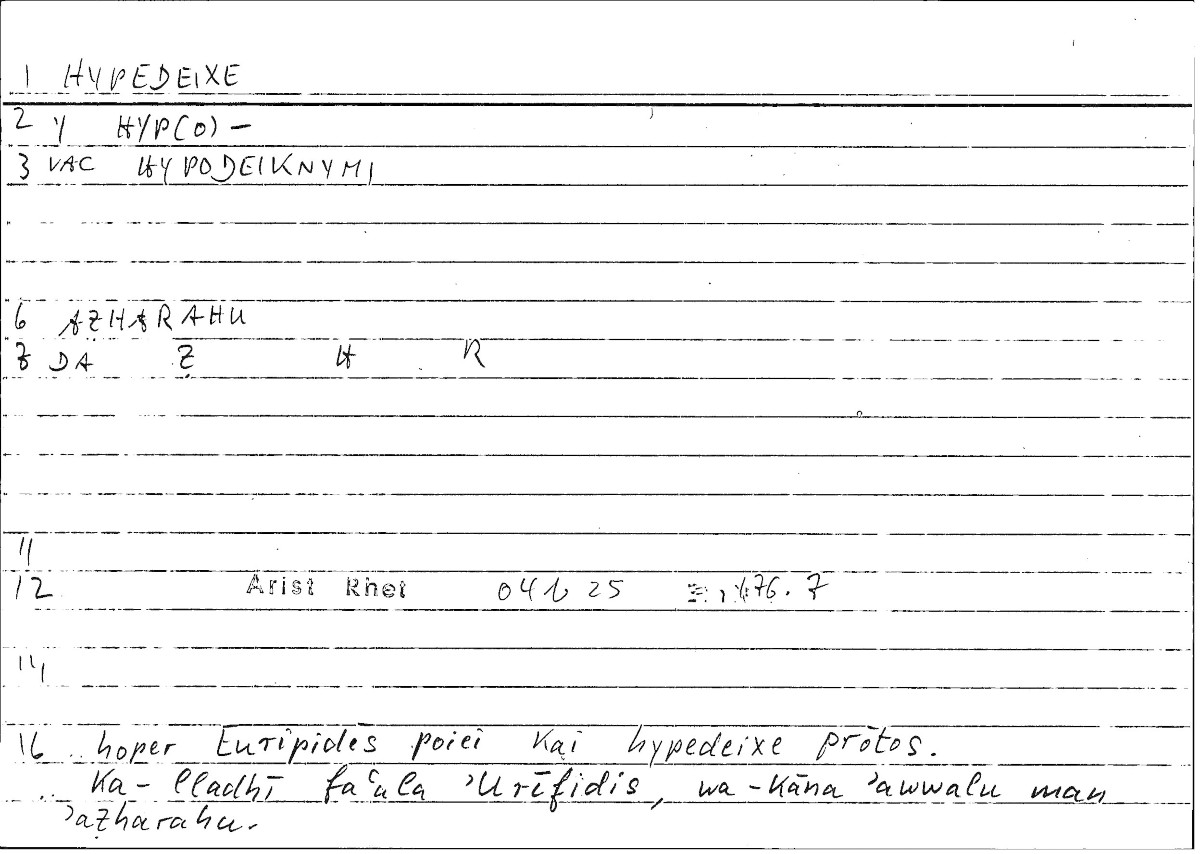 1 HYPEDEIXE
2 Y HYP(O) –
3 VAC HYPODEIKNYMI
6 AẒHARAHU
7 DA Ẓ H R
11
12 Arist Rhet 04b 25 176.7
14
16 hoper Euripidēs poiei kai hypedeixe prōtos.
Ka-lladhī faʿala ʾUrīfidis, wa-kāna ʾawwalu man
ʾaẓharahu.